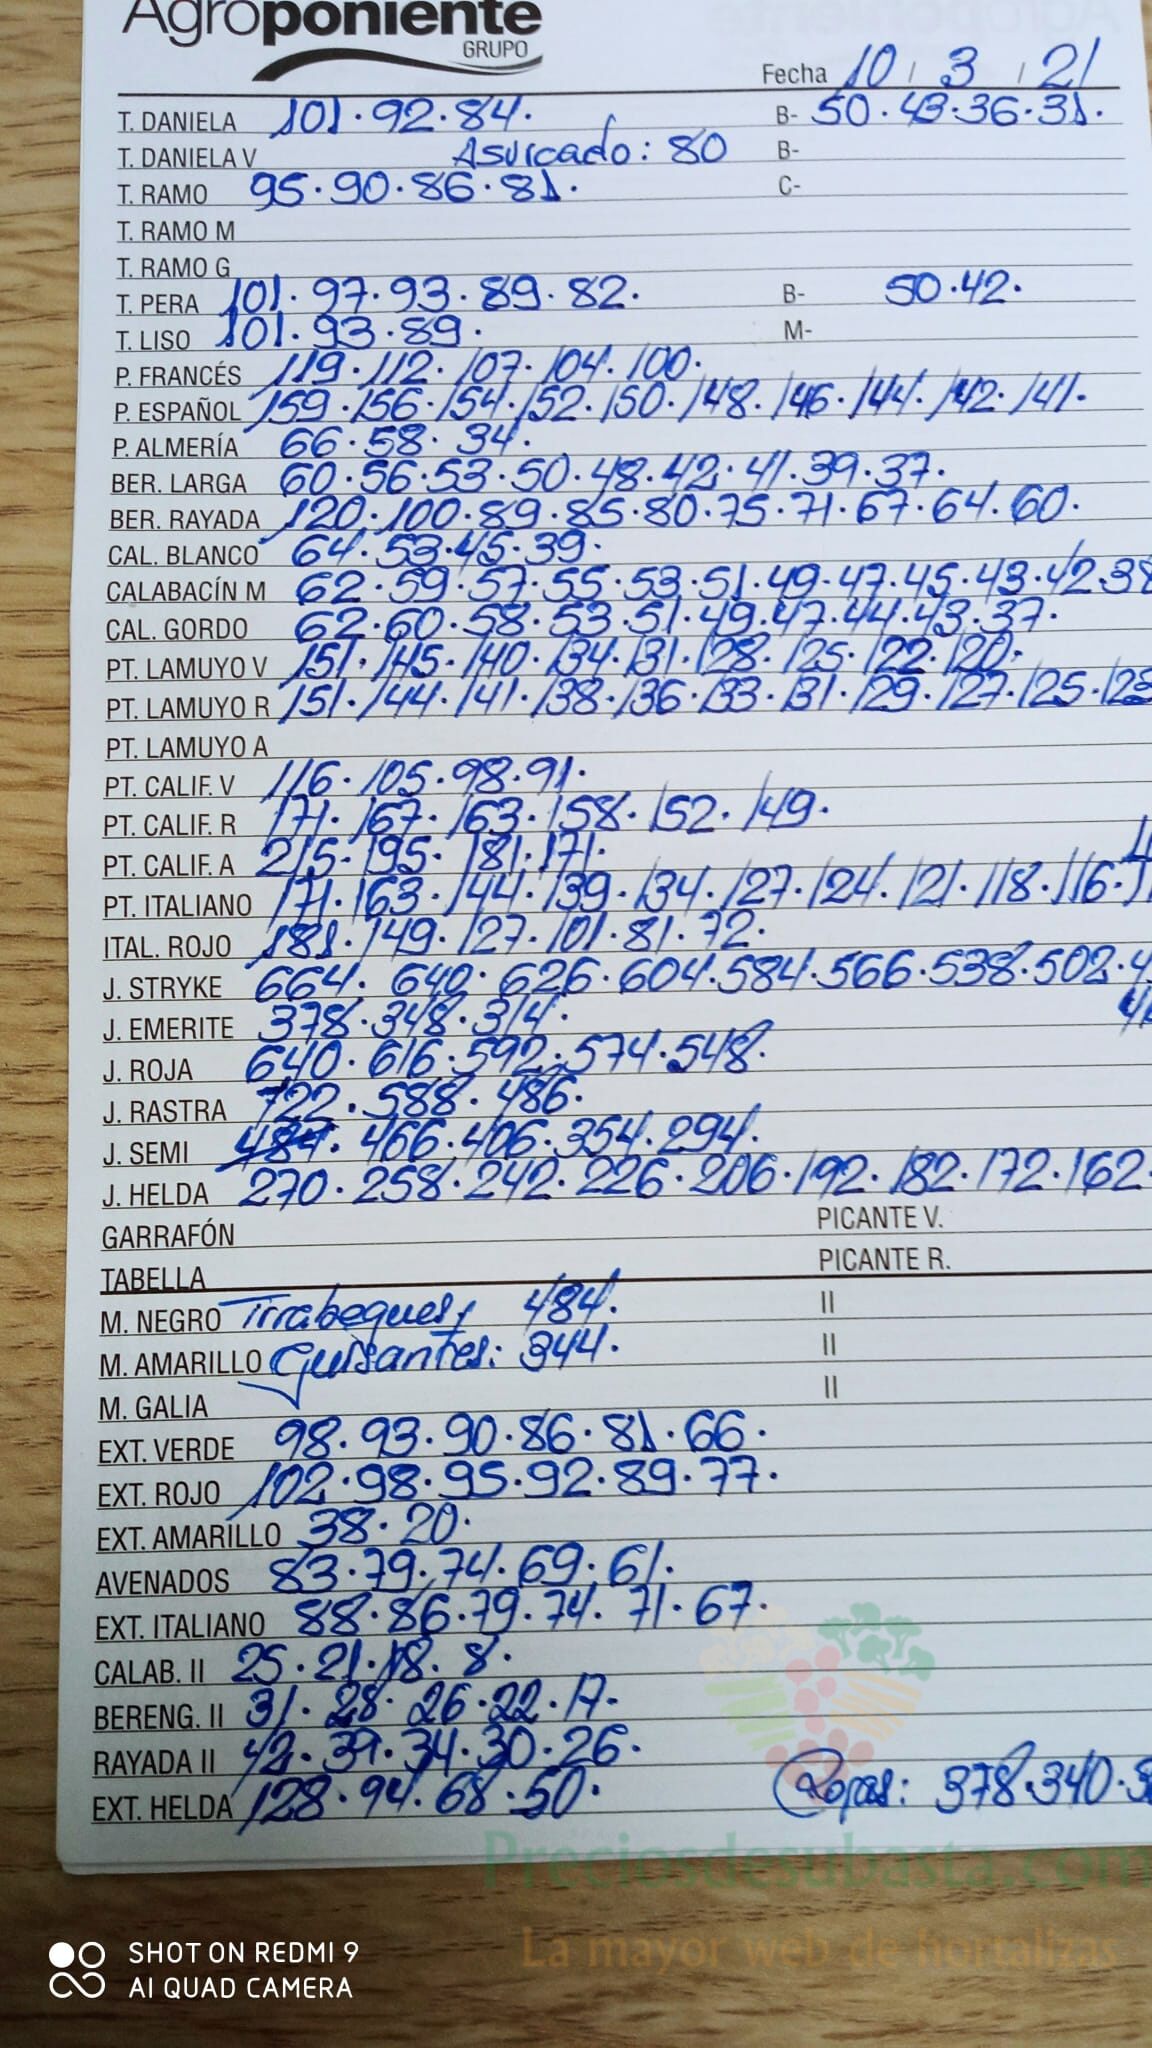 Agroponiente
GRUPO
Fecha 10 / 3 / 21
T. DANIELA 101.92.84. B- 50.43.36.31.
T. DANIELA V Asurcado: 80 B-
T. RAMO 95.90.86.81. C-
T. RAMO M
T. RAMO G
T. PERA 101.97.93.89.82. B- 50.42.
T. LISO 101.93.89. M-
P. FRANCÉS 119.112.107.104.100.
P. ESPAÑOL 159.156.154.152.150.148.146.144.142.141.
P. ALMERÍA 66.58.34.
BER. LARGA 60.56.53.50.48.42.41.39.37.
BER. RAYADA 120.100.89.85.80.75.71.67.64.60.
CAL. BLANCO 64.53.45.39.
CALABACÍN M 62.59.57.55.53.51.49.47.45.43.42.38
CAL. GORDO 62.60.58.53.51.49.47.44.43.37.
PT. LAMUYO V 151.145.140.134.131.128.125.122.120.
PT. LAMUYO R 151.144.141.138.136.133.131.129.127.125.123
PT. LAMUYO A
PT. CALIF. V 116.105.98.91.
PT. CALIF. R 171.167.163.158.152.149.
PT. CALIF. A 215.195.181.171.
PT. ITALIANO 171.163.144.139.134.127.124.121.118.116.
ITAL. ROJO 181.149.127.101.81.72.
J. STRYKE 664.640.626.604.584.566.538.502.
J. EMERITE 378.348.314.
J. ROJA 640.616.592.574.548.
J. RASTRA 722.588.486.
J. SEMI 484.466.406.354.294.
J. HELDA 270.258.242.226.206.192.182.172.162.
GARRAFÓN PICANTE V.
TABELLA PICANTE R.
M. NEGRO Tirabeques, 484. II
M. AMARILLO Guisantes: 344. II
M. GALIA II
EXT. VERDE 98.93.90.86.81.66.
EXT. ROJO 102.98.95.92.89.77.
EXT. AMARILLO 38.20.
AVENADOS 83.79.74.69.61.
EXT. ITALIANO 88.86.79.74.71.67.
CALAB. II 25.21.18.8.
BERENG. II 31.28.26.22.17.
RAYADA II 42.39.34.30.26.
EXT. HELDA 128.94.68.50. Rojas: 378.340.
Preciosdesubasta.com
La mayor web de hortalizas
SHOT ON REDMI 9
AI QUAD CAMERA